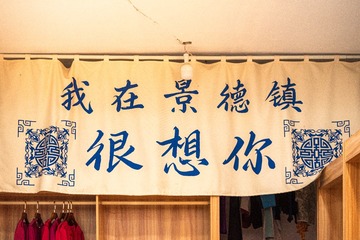 我在景德镇
很想你